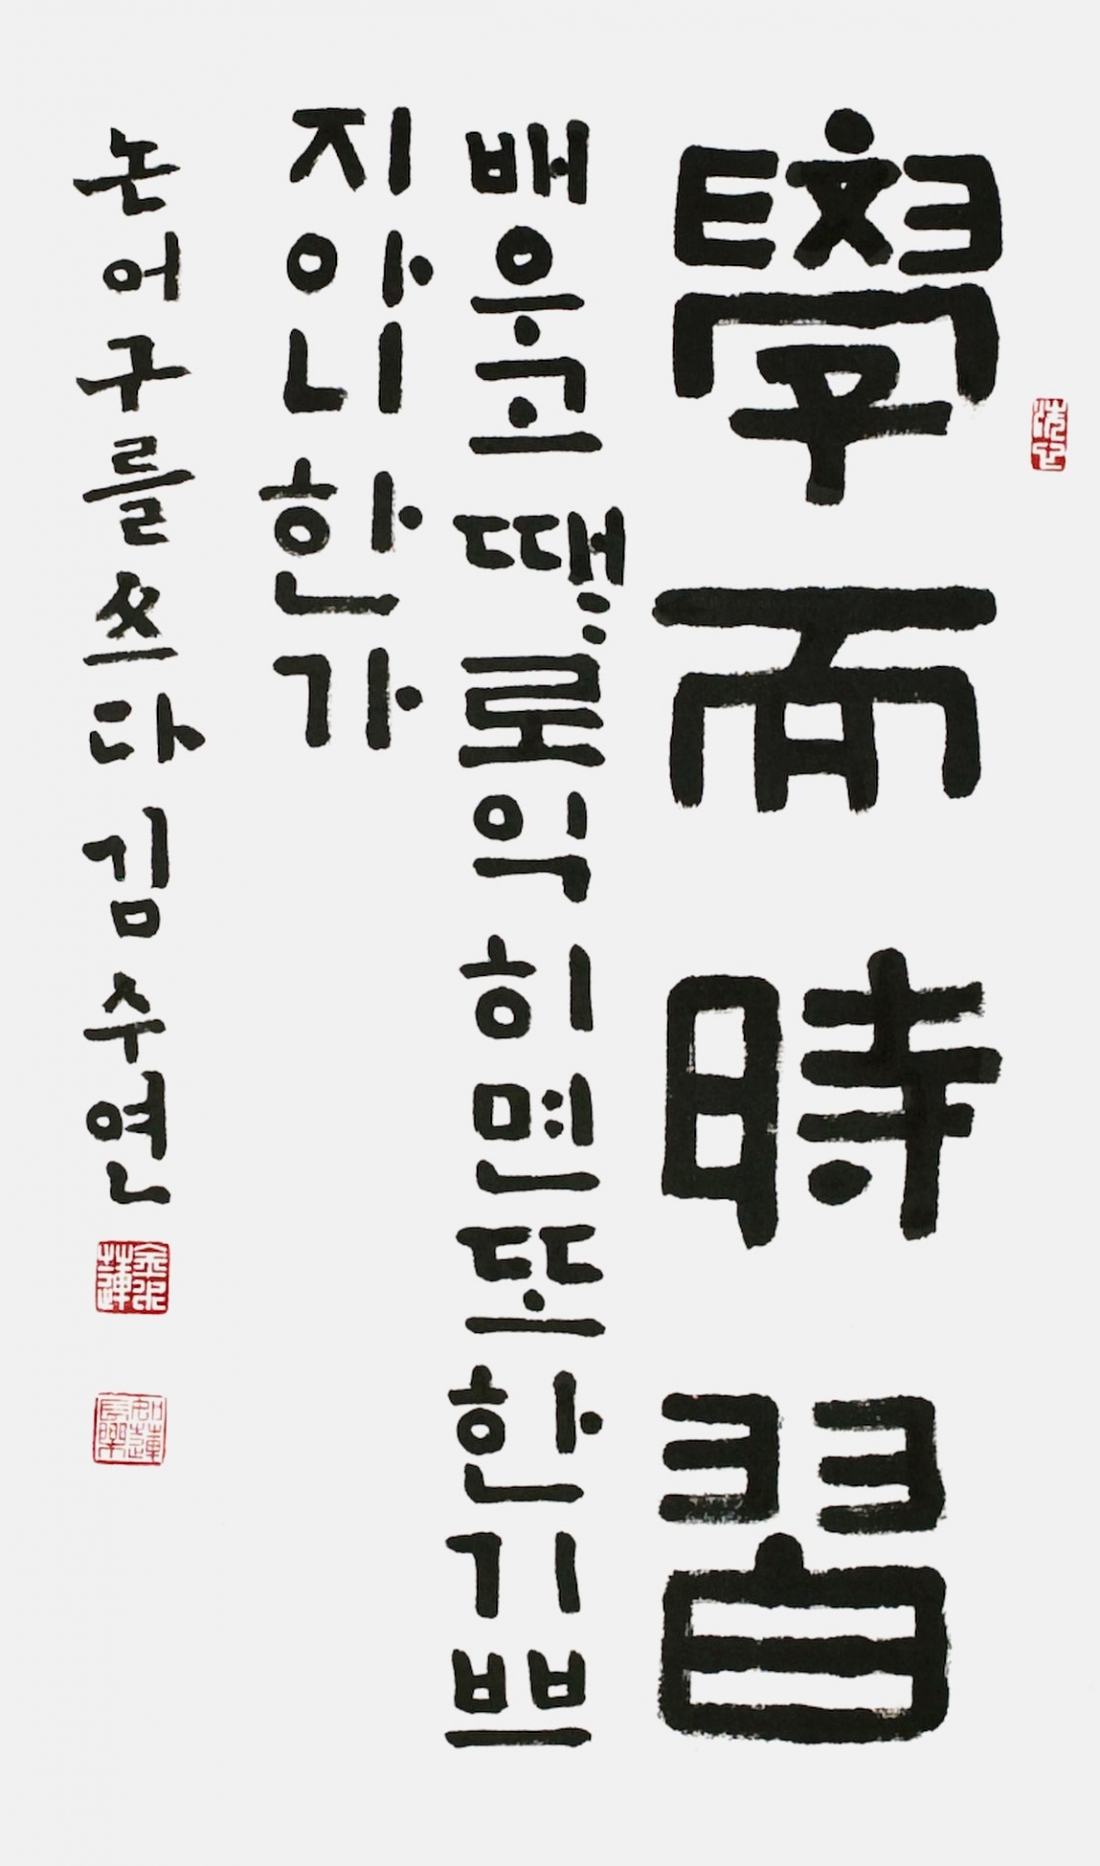 學而時習
배우고때〻로익히면또한기쁘
지아니한가
논어구를쓰다 김수연
金水蓮